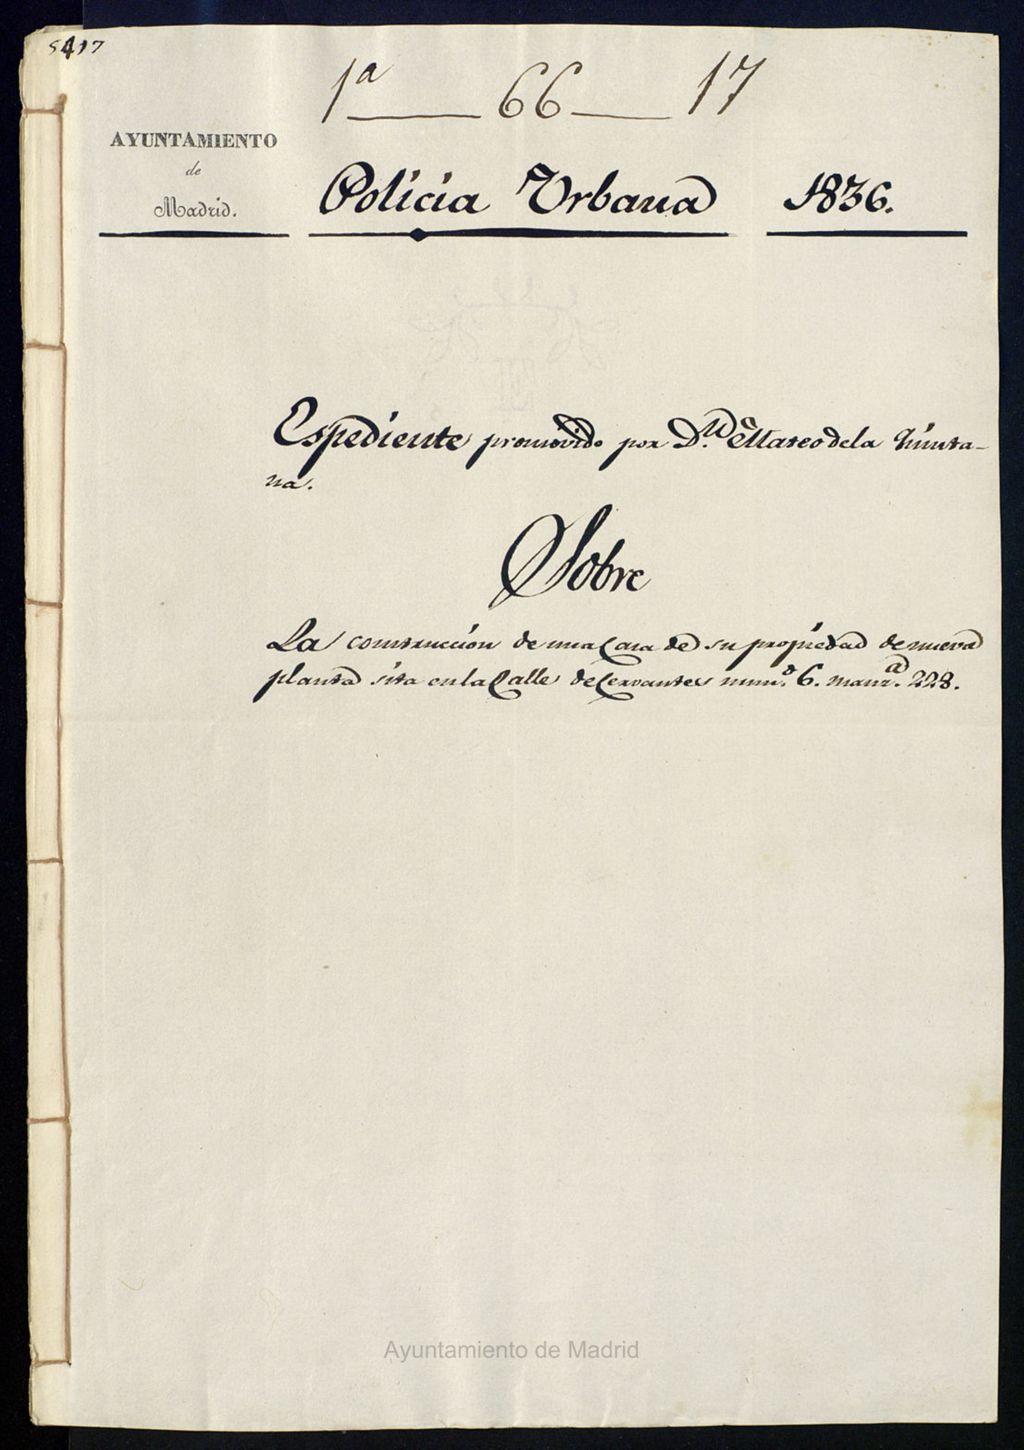 5417
1ª 66 17
AYUNTAMIENTO
de
Madrid.
Policia Urbana 1836.
Espediente promovido por D.ⁿ Mateo de la Quinta-
na.
Sobre
La construccion de una Casa de su propiedad de nueva
planta sita en la Calle de Cervantes num.º 6. manz.ª 228.
Ayuntamiento de Madrid